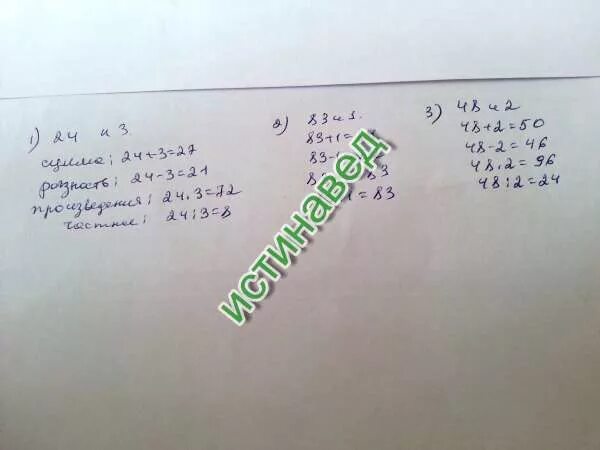 1) 24 и 3
сумма; 24+3=27
разность; 24-3=21
произведения; 24.3=72
частное; 24:3=8
2) 83 и 1.
83+1=
83-
83
= 83
3) 48 и 2
48+2=50
48-2=46
48.2=96
48:2=24
истинавед